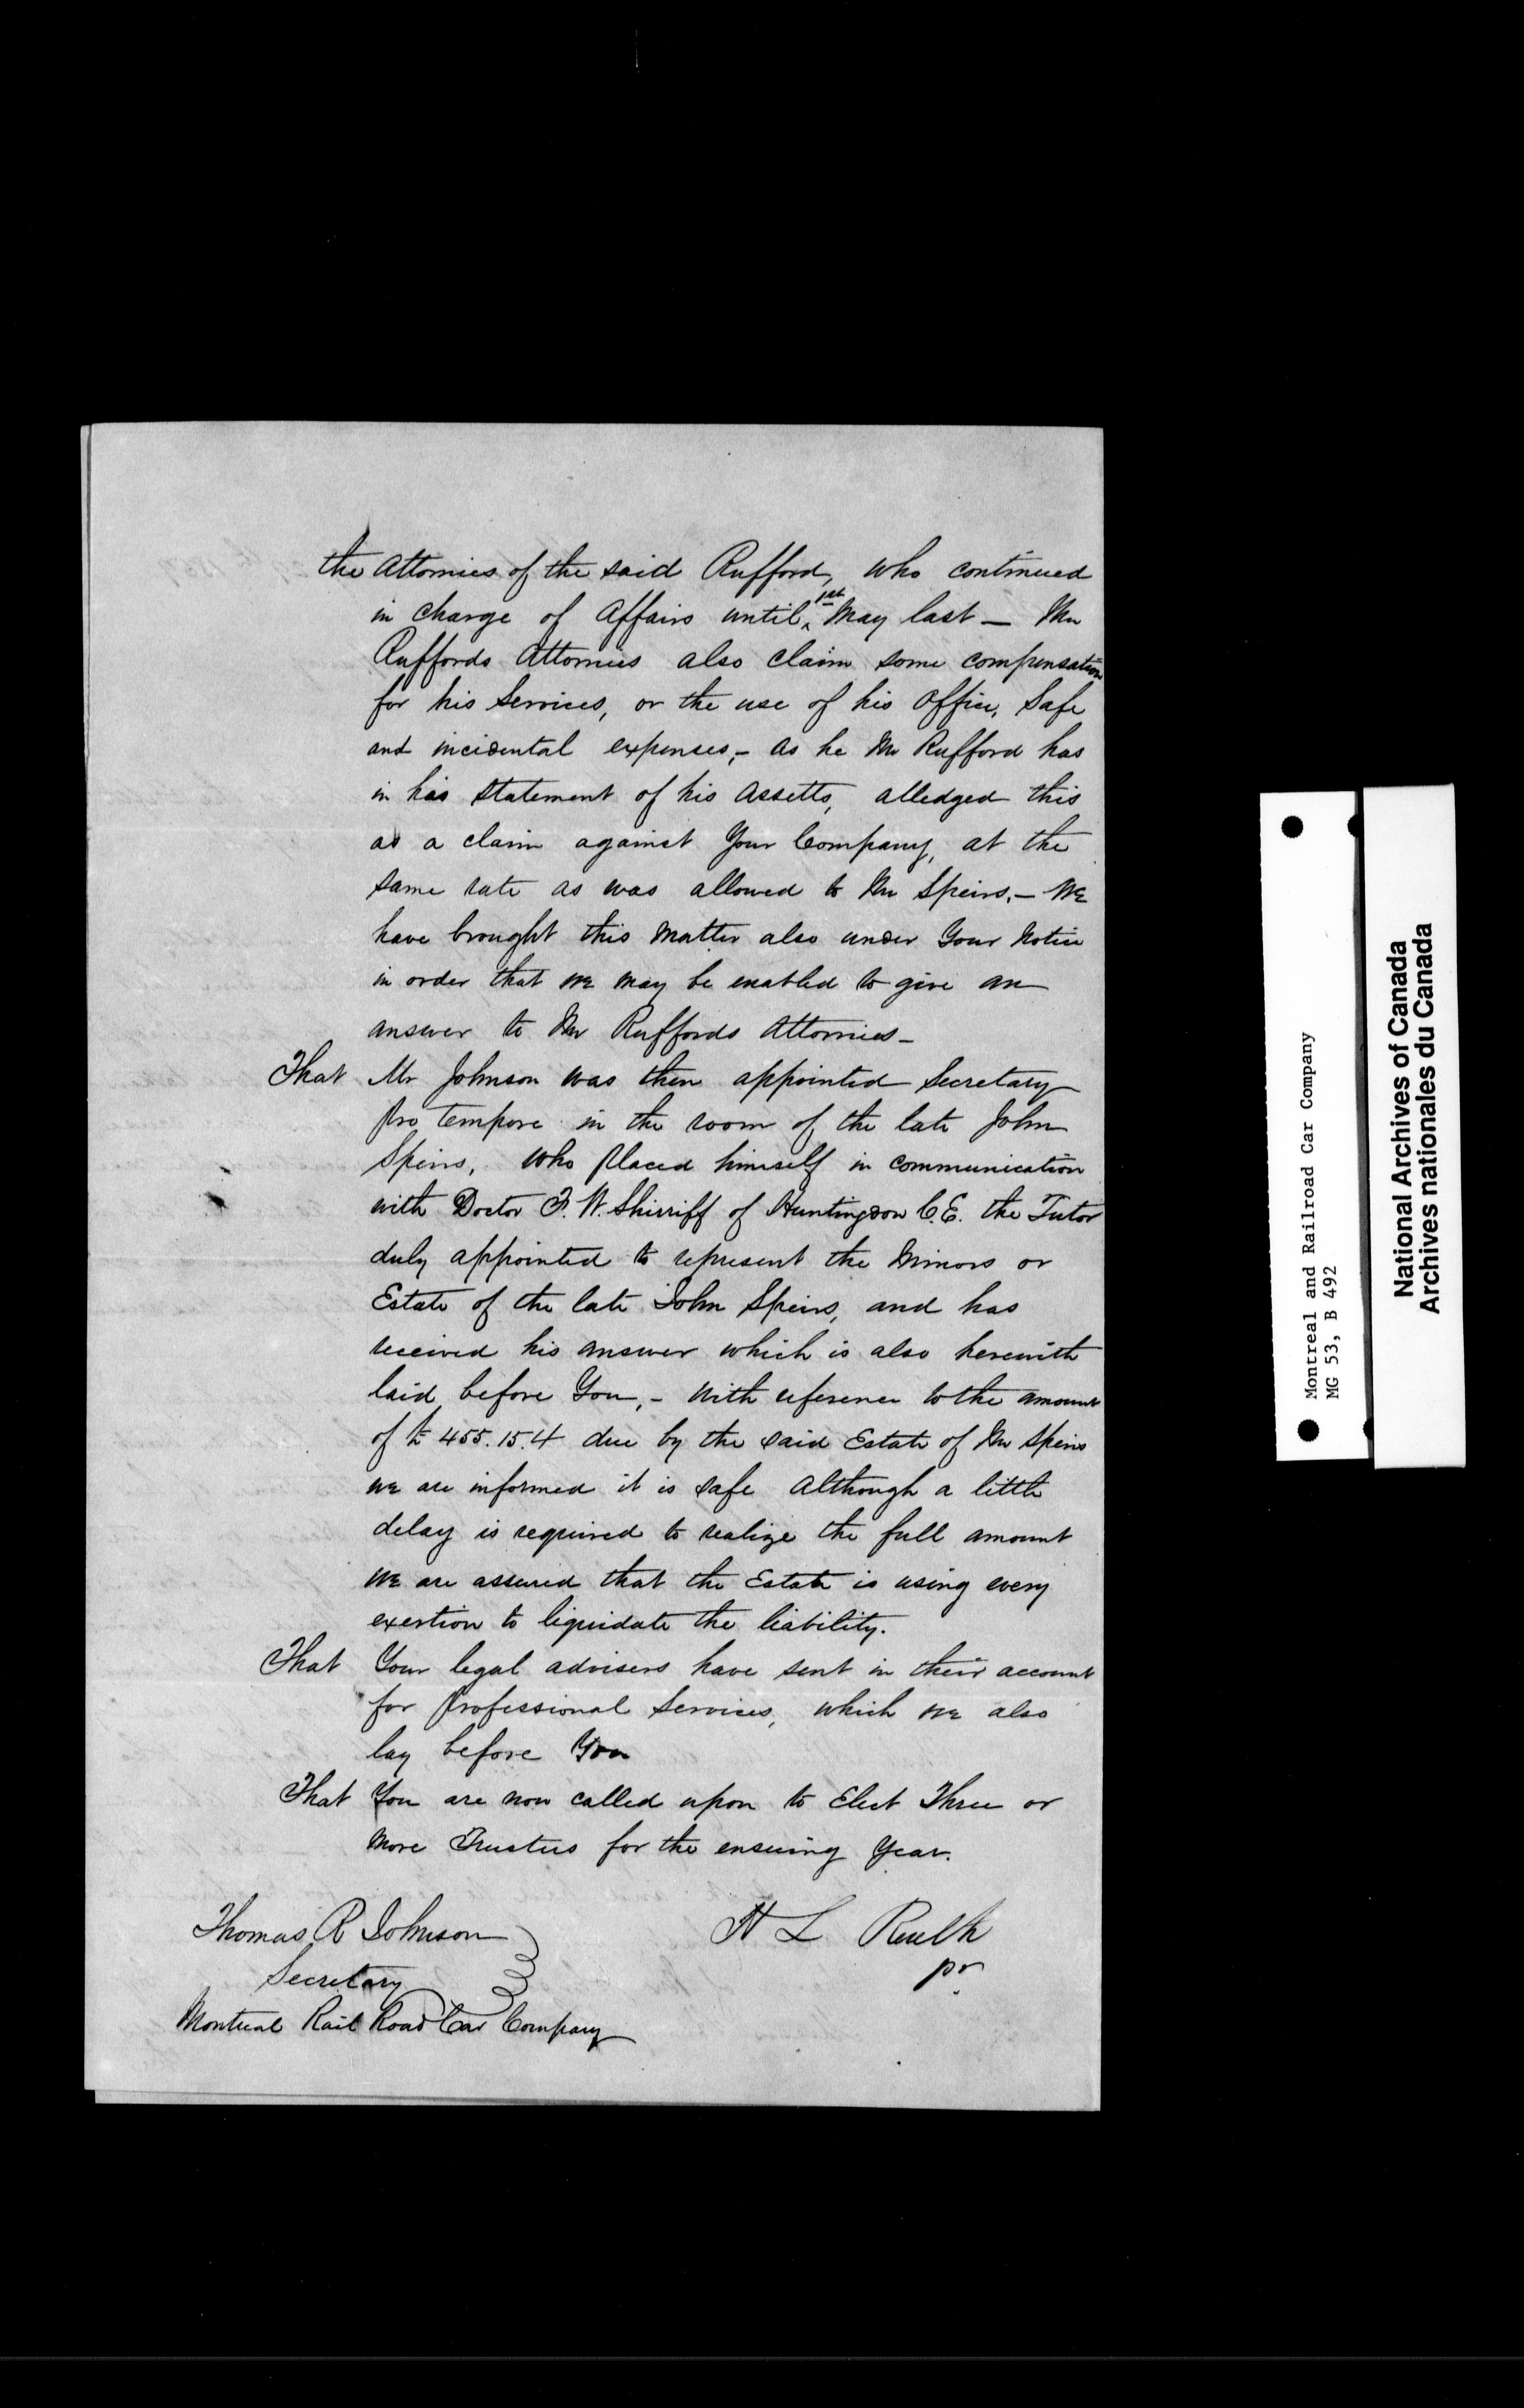 the Attornies of the said Rufford, who continued
in charge of Affairs until 1st May last — Mr
Ruffords Attornies also claim some compensation
for his Services, or the use of his Office, Safe
and incidental expenses, – as he Mr Rufford has
in his Statement of his Assetts, alledged this
as a claim against Your Company, at the
same rate as was allowed to Mr Speirs. – We
have brought this Matter also under Your Notice
in order that we may be enabled to give an
answer to Mr Ruffords Attornies –
That Mr Johnson was then appointed Secretary
pro tempore in the room of the late John
Speirs, who placed himself in communication
with Doctor F. W. Shirriff of Huntingdon C.E. the Tutor
duly appointed to represent the Minors or
Estate of the late John Speirs, and has
received his answer which is also herewith
laid before You, – With reference to the amount
of £ 455.15.4 due by the said Estate of Mr Speirs
we are informed it is safe Although a little
delay is required to realize the full amount
we are assured that the Estate is using every
exertion to liquidate the liability.
That Your legal advisers have sent in their account
for professional Services, which we also
lay before You
That You are now called upon to Elect Three or
More Trustees for the ensuing Year.
Thomas R Johnson
Secretary
Montreal Rail Road Car Company
H L Routh
pr
Montreal and Railroad Car Company
MG 53, B 492
National Archives of Canada
Archives nationales du Canada